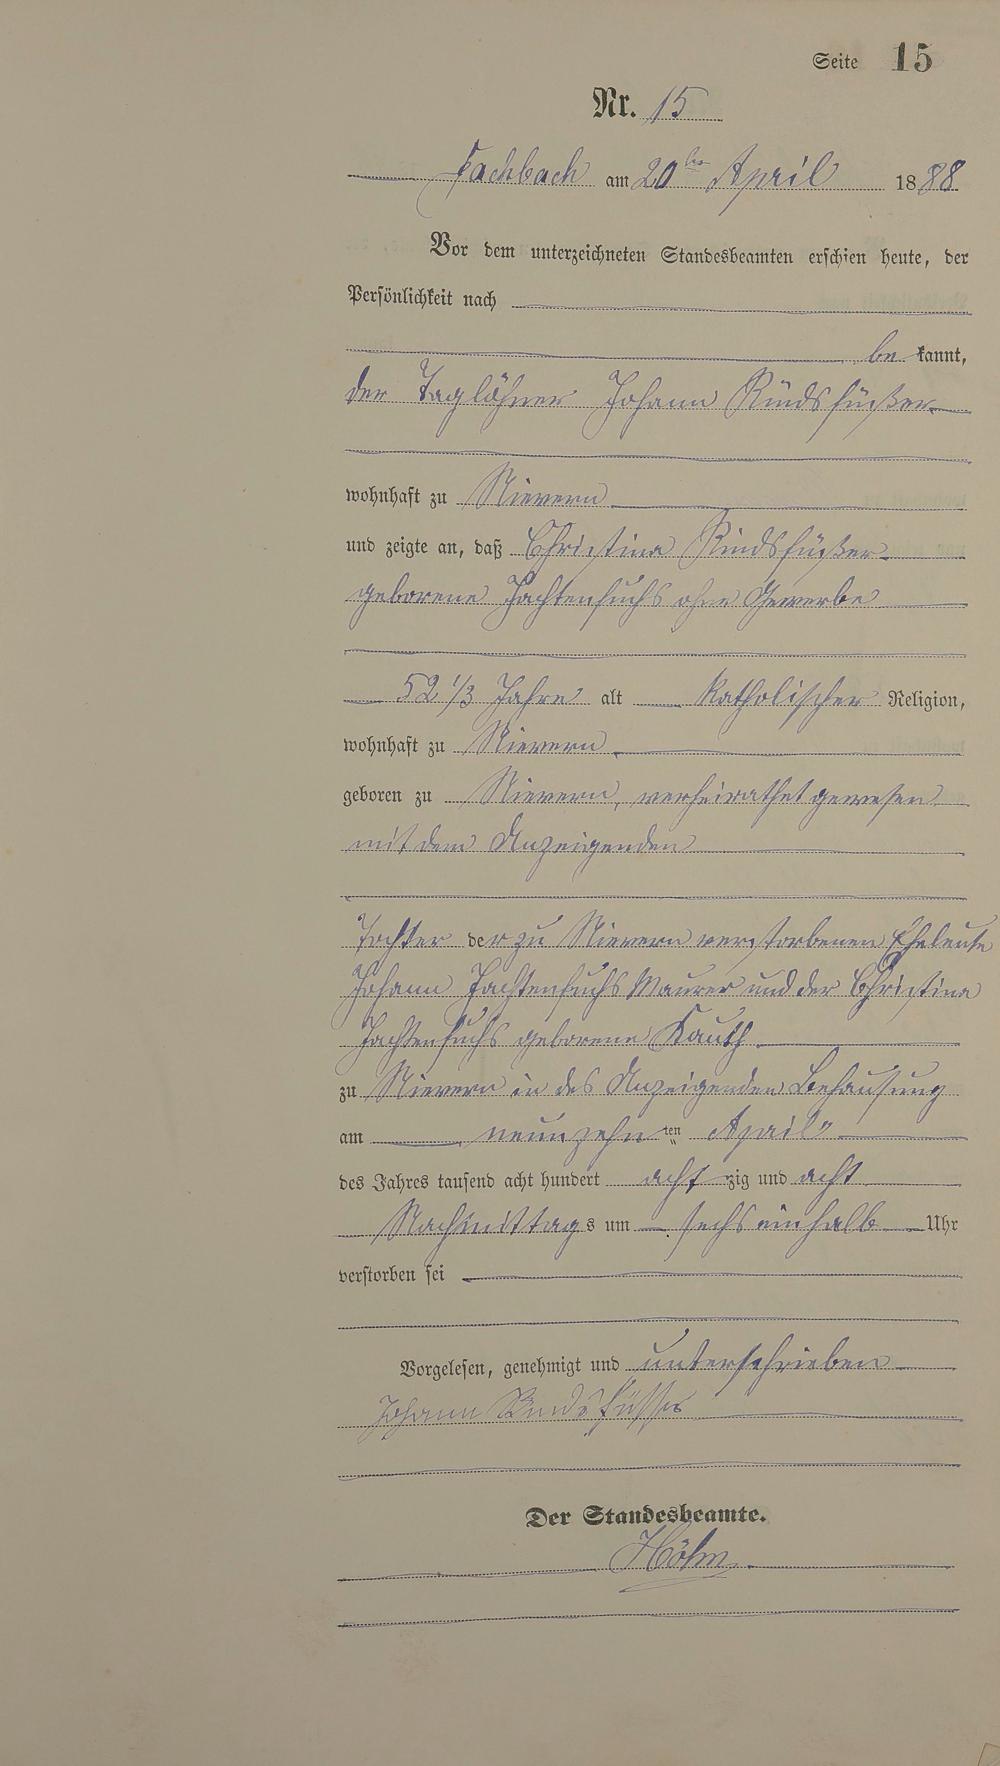 Seite 15
Nr. 15
Fachbach am 20ten April 1888
Vor dem unterzeichneten Standesbeamten erschien heute, der
Persönlichkeit nach
be kannt,
der Taglöhner Johann Rindsfüßer
wohnhaft zu Nievern
und zeigte an, daß Christina Rindsfüßer
geborene Fachtenfuchs ohne Gewerbe
52 1/3 Jahre alt katholischer Religion,
wohnhaft zu Nievern
geboren zu Nievern, verheirathet gewesen
mit dem Anzeigenden
Tochter der zu Nievern verstorbenen Eheleute
Johann Fachtenfuchs Maurer und der Christina
Fachtenfuchs geborene Kauth
zu Nievern in des Anzeigenden Behausung
am neunzehn ten April
des Jahres tausend acht hundert acht zig und acht
Nachmittags um sechs einhalb Uhr
verstorben sei
Vorgelesen, genehmigt und unterschrieben
Johann Rindsfüsser
Der Standesbeamte.